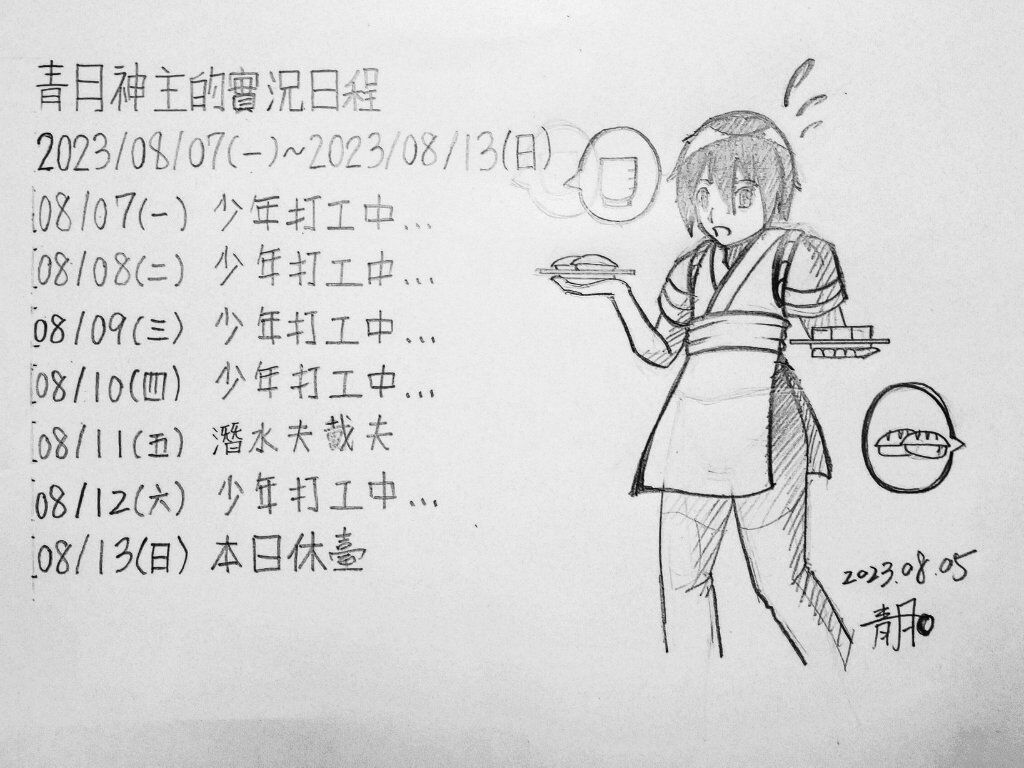 青月神主的實況日程
2023/08/07(一)~2023/08/13(日)
08/07(一) 少年打工中...
08/08(二) 少年打工中...
08/09(三) 少年打工中...
08/10(四) 少年打工中...
08/11(五) 潛水夫戴夫
08/12(六) 少年打工中...
08/13(日) 本日休臺
2023.08.05
青月